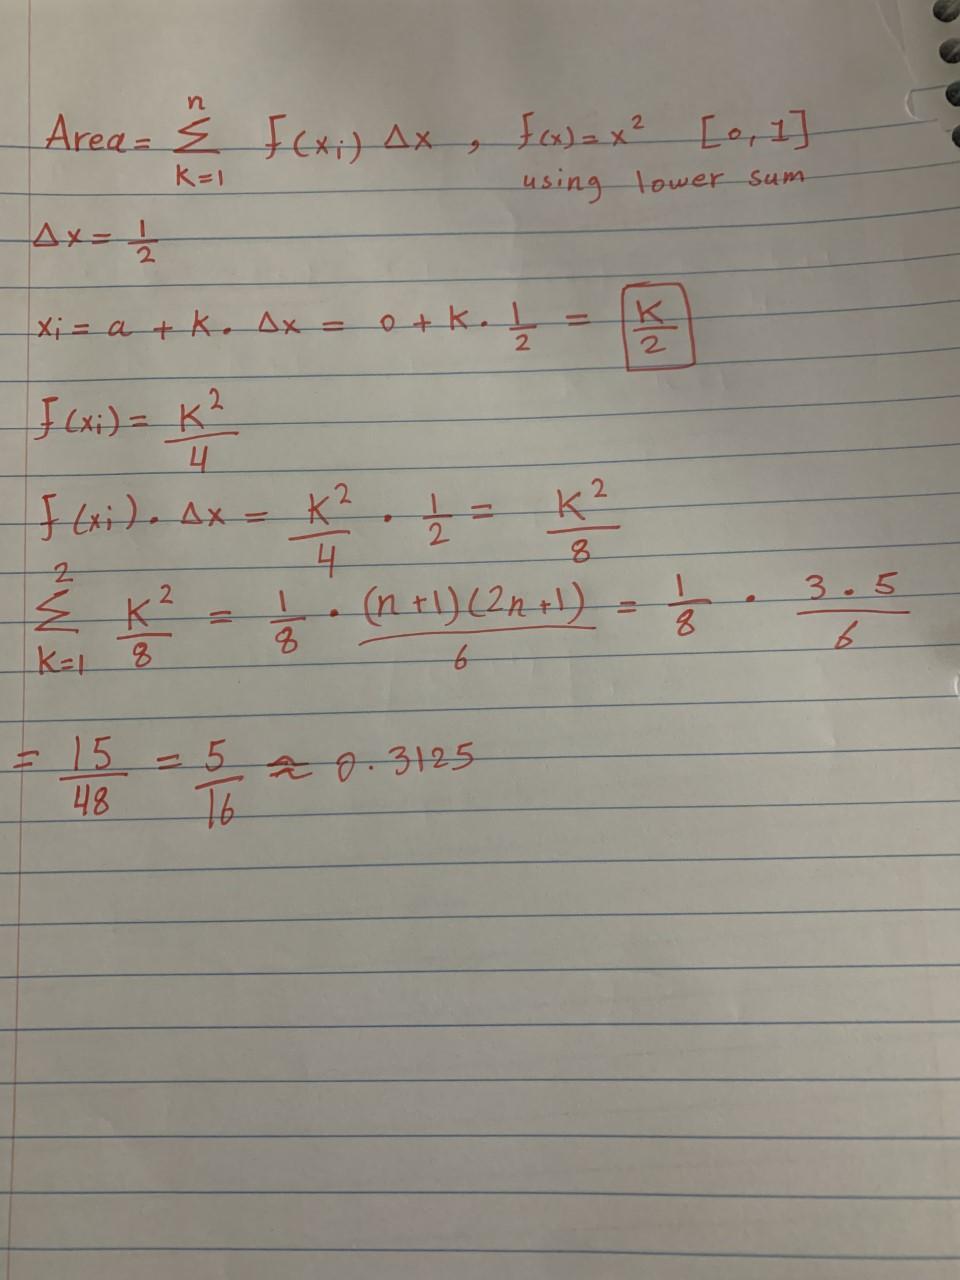 Area = ∑_{K=1}^{n} f(xᵢ) Δx , f(x) = x² [0, 1]
using lower sum
Δx = 1/2
xᵢ = a + K · Δx = 0 + K · 1/2 = K/2
f(xᵢ) = K²/4
f(xᵢ) · Δx = K²/4 · 1/2 = K²/8
∑_{K=1}^{2} K²/8 = 1/8 · (n+1)(2n+1)/6 = 1/8 · 3·5/6
= 15/48 = 5/16 ≈ 0.3125